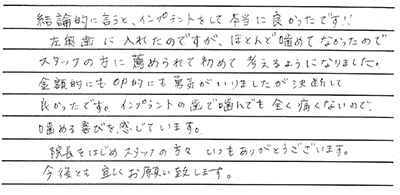 結論的に言うと、インプラントをして本当に良かったです!!
左奥歯に入れたのですが、ほとんど噛めてなかったので
スタッフの方に薦められて初めて考えるようになりました。
金額的にもOP的にも勇気がいりましたが決断して
良かったです。インプラントの歯で噛んでも全く痛くないので、
噛める喜びを感じています。
院長をはじめスタッフの方々いつもありがとうございます。
今後とも宜しくお願い致します。